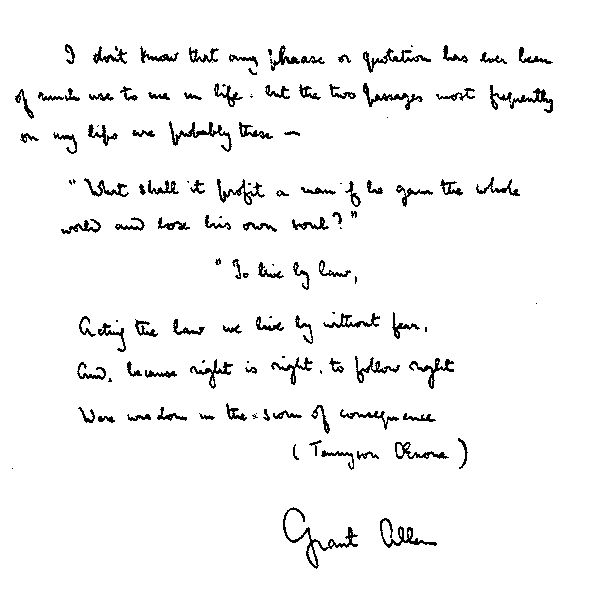 I don't know that any phrase or quotation has ever been
of much use to me in life. but the two passages most frequently
on my lips are probably these —
"What shall it profit a man if he gain the whole
world and lose his own soul?"
"To live by law,
Acting the law we live by without fear,
And, because right is right, to follow right
Were wisdom in the scorn of consequence
(Tennyson Œnone)
Grant Allen